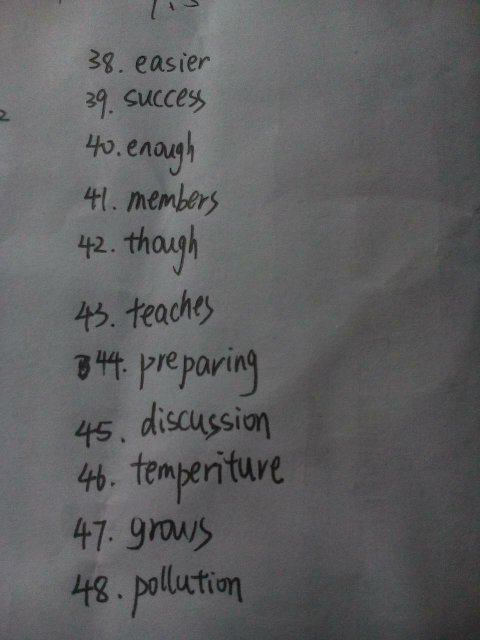 38. easier
39. success
40. enough
41. members
42. though
43. teaches
44. preparing
45. discussion
46. temperiture
47. grows
48. pollution